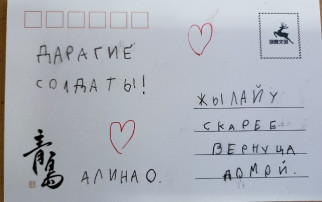 ДАРАГИЕ
СОЛДАТЫ!
ЖЫЛАЙУ
СКАРЕБ
ВЕРНУЦА
ДОМОЙ.
АЛИНА О.